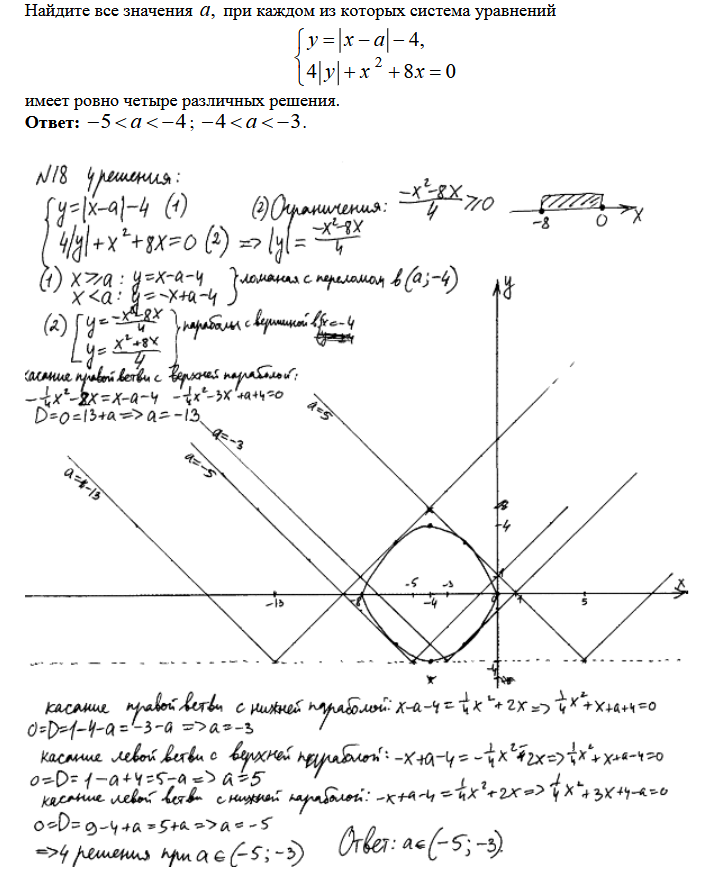 Найдите все значения a, при каждом из которых система уравнений
{ y = |x − a| − 4,
4|y| + x² + 8x = 0
имеет ровно четыре различных решения.
Ответ: −5 < a < −4; −4 < a < −3.
N18 4 решения:
{ y=|x−a|−4 (1) (2) Ограничения: (−x²−8x)/4 ≥ 0 −8 0 x
4|y|+x²+8x=0 (2) => |y| = (−x²−8x)/4
(1) x≥a: y=x−a−4 } ломаная с переломом в (a;−4)
x<a: y=−x+a−4
(2) [ y=(−x²−8x)/4 } параболы с вершиной в x=−4
y=(x²+8x)/4
касание правой ветви с верхней параболой:
−¼x²−2x=x−a−4 −¼x²−3x+a+4=0
D=0=13+a=>a=−13
y
a=5
a=−3
a=−5
a=−13
−4
−5 −3
x
−13 −8 −4 0 5
−4
касание правой ветви с нижней параболой: x−a−4=¼x²+2x=>¼x²+x+a+4=0
0=D=1−4−a=−3−a=>a=−3
касание левой ветви с верхней параболой: −x+a−4=−¼x²−2x=>¼x²+x+a−4=0
0=D=1−a+4=5−a=>a=5
касание левой ветви с нижней параболой: −x+a−4=¼x²+2x=>¼x²+3x+4−a=0
0=D=9−4+a=5+a=>a=−5
=>4 решения при a∈(−5;−3) Ответ: a∈(−5;−3).